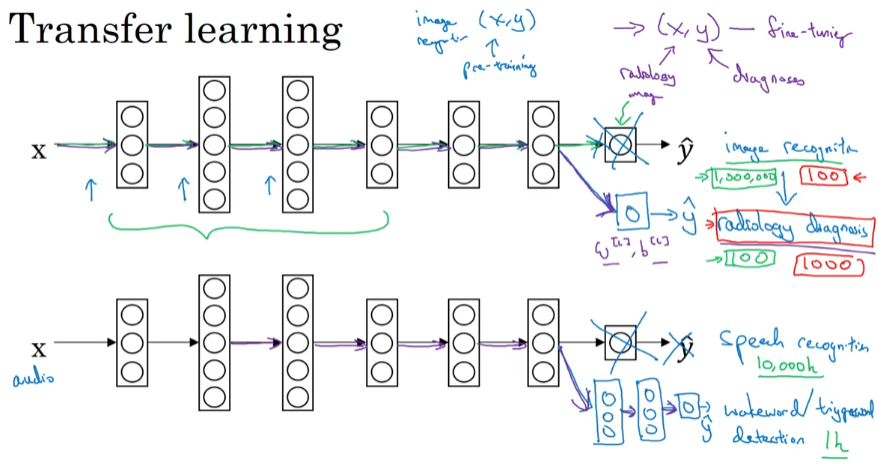 Transfer learning
image recognition (x,y)
pre-training
→ (x,y) — fine-tuning
radiology image
diagnoses
x
ŷ
image recognition
→ 1,000,000
100 ←
0 → ŷ
radiology diagnosis
w[L], b[L]
→ 100
1000
x
audio
ŷ
speech recognition
10,000h
ŷ
wakeword/triggerword
detection 1h